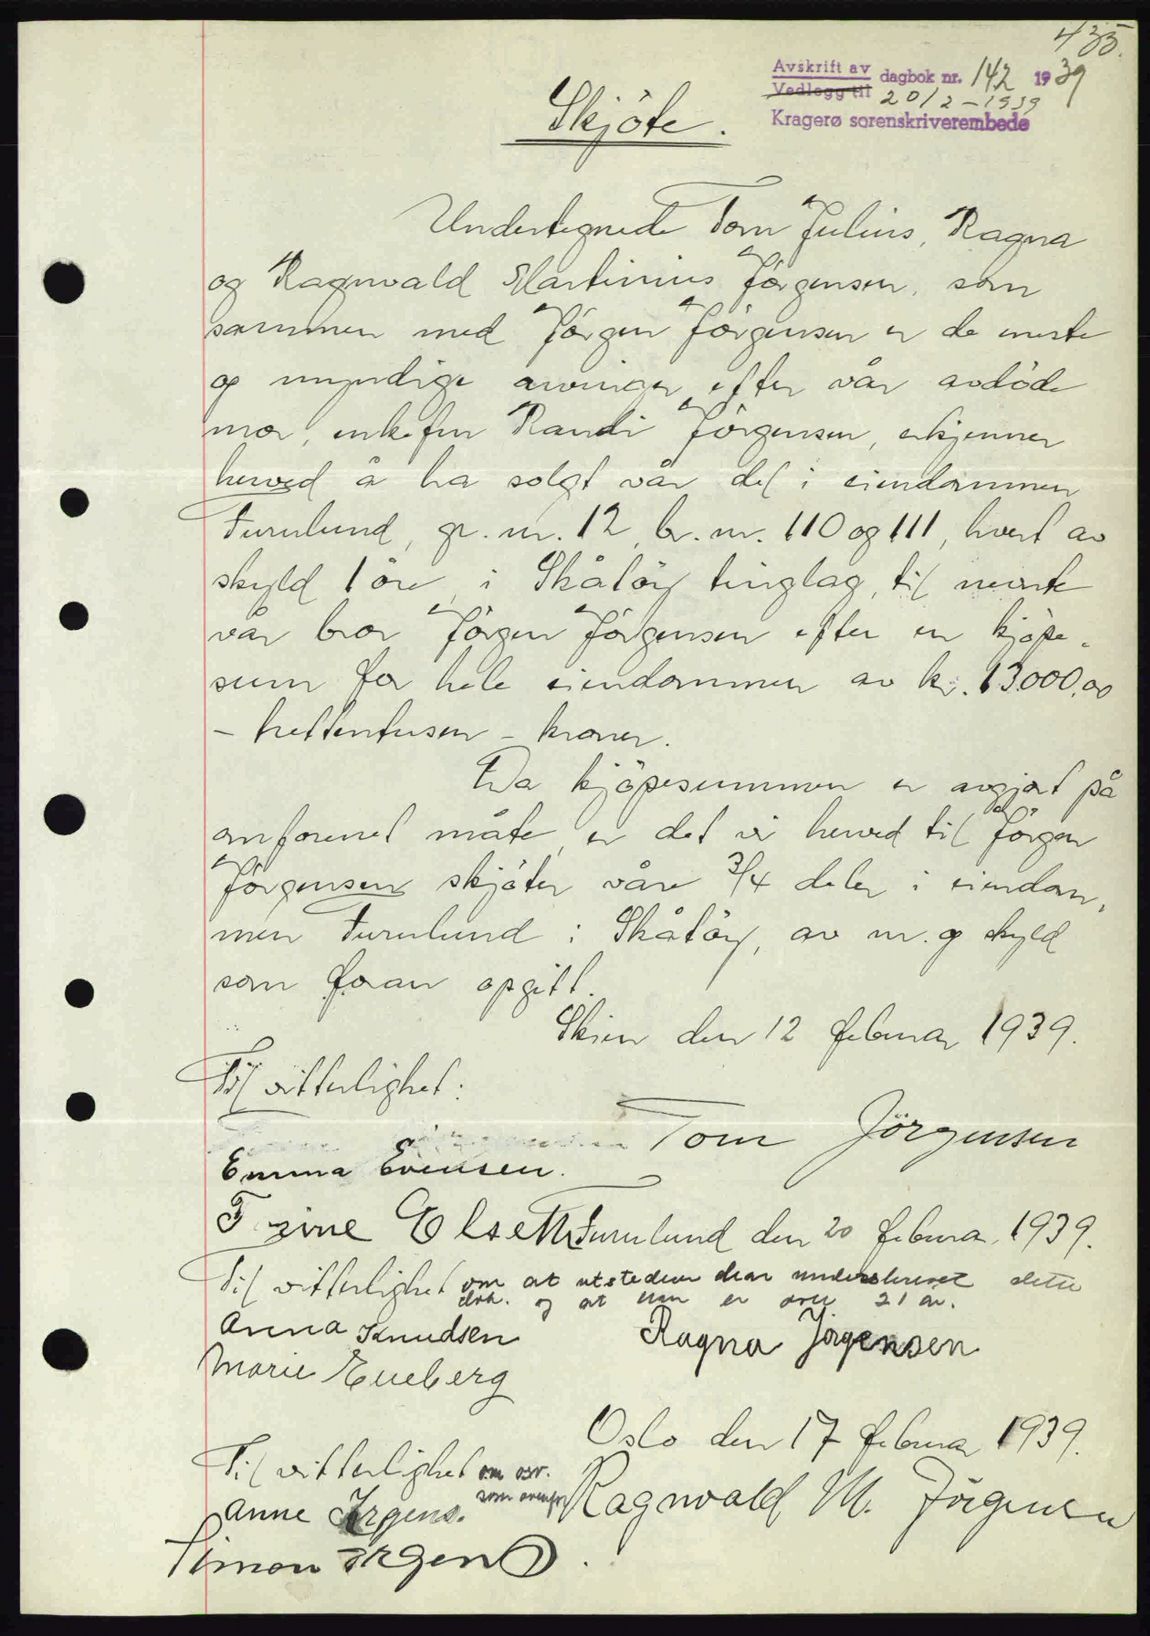 435.
Avskrift av dagbok nr. 142 1939
Vedlegg til 20/2-1939
Kragerø sorenskriverembede
Skjöte.
Undertegnede Tom Julius, Ragna
og Ragnvald Martinius Jörgensen, som
sammen med Jörgen Jörgensen er de eneste
og myndige arvinger efter vår avdöde
mor, enkefru Randi Jörgensen, erkjenner
herved å ha solgt vår del i eiendommen
Furulund, gr. nr. 12, br. nr. 110 og 111, hvert av
skyld 1 öre, i Skåtöy tinglag, til nevnte
vår bror Jörgen Jörgensen efter en kjöpe-
sum for hele eiendommen av kr. 13000,00
- trettentusen - kroner.
Da kjöpesummen er avgjort på
omforenet måte, er det vi herved til Jörgen
Jörgensen skjöter våre 3/4 deler i eiendom-
men Furulund i Skåtöy, av nr. og skyld
som foran opgitt.
Skien den 12 februar 1939.
Til vitterlighet:
Tom Jörgensen
Emma Evensen.
Furulund den 20 februar 1939.
Til vitterlighet om at utstederen har underskrevet dette
dok. og at hun er over 21 år.
Anna Knudsen
Ragna Jörgensen
Marie Eueberg
Oslo den 17 februar 1939.
Til vitterlighet om osv.
som ovenfor
Ragnvald M. Jörgensen
Anne Irgens.
Simon Irgens.